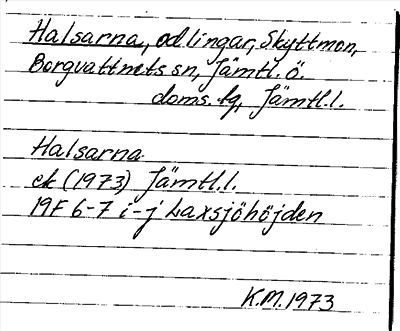 Halsarna, odlingar, Skyttmon,
Borgvattnets sn, Jämtl. ö.
doms.lg, Jämtl.l.
Halsarna
ek (1973) Jämtl.l.
19F 6-7 i-j Laxsjöhöjden
K.M. 1973